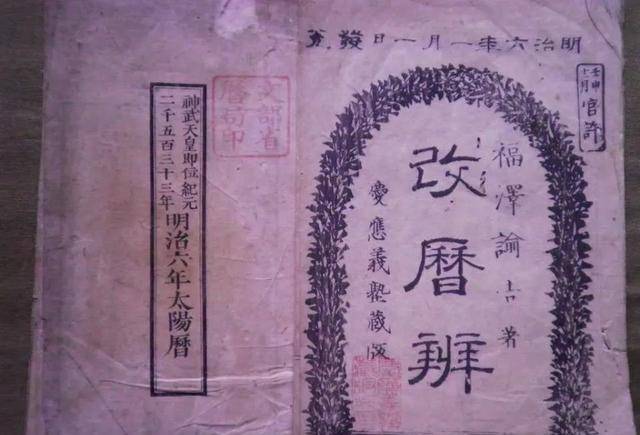 明治六年一月一日發兌
壬申
十一月
官許
福澤諭吉著
改暦辨
慶應義塾藏版
文部省
暦局印
神武天皇即位紀元
二千五百三十三年
明治六年太陽暦